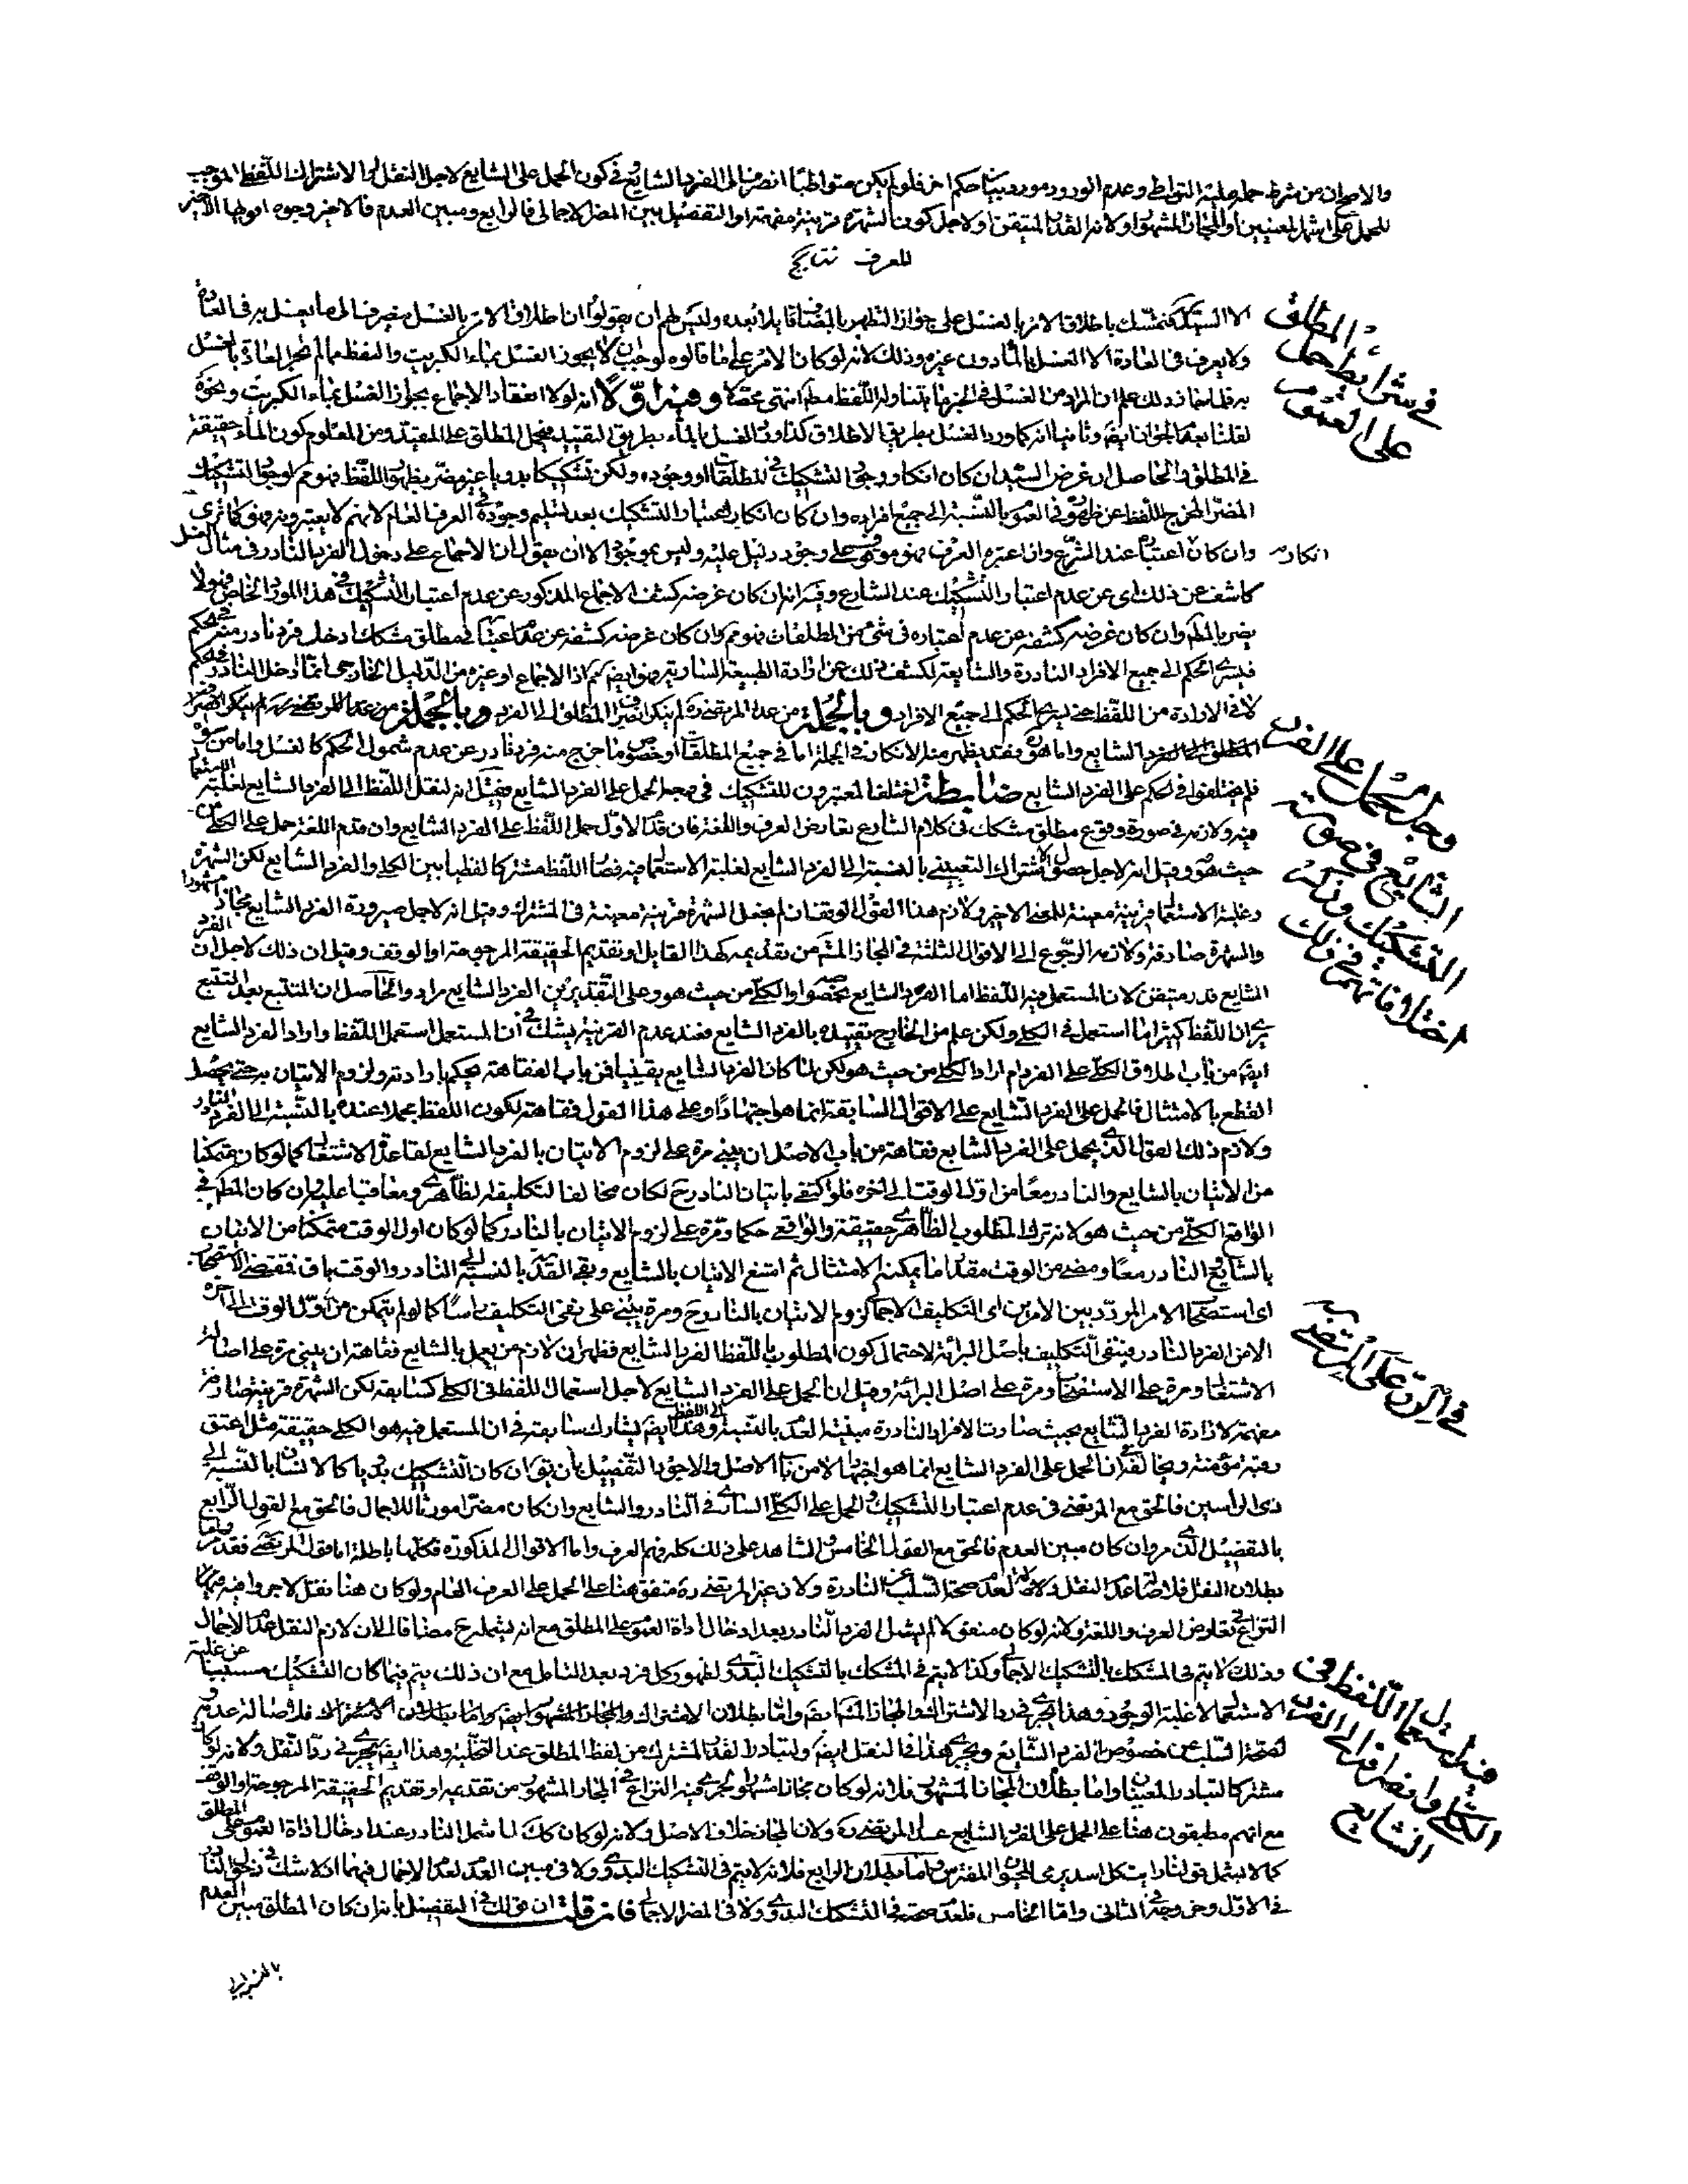 والاصح ان من شرط حمله عليه التواطي وعدم الورود مورد بيان حكم اخر فلو لم يكن متواطيا انصرف الى الفرد الشايع في كون الحمل على الشايع لاجل النقل او الاشتراك اللفظي الموجب
للحمل على اشهر المعنيين او المجاز المشهور او لانه القدر المتيقن او لاجل كون الشهرة قرينة مفهمة او التفصيل بين المضر الاجمالي فالرابع ومبين العدم فالاخير وجوه اوليها الاخير
للعرف نتايج
في شرايط حمل المطلق على العموم
الا السيد فتمسك باطلاق الامر بالغسل على جواز التطهر بالمضاف قايلا بعده وليس لهم ان يقولوا ان اطلاق الامر بالغسل ينصرف الى ما يغسل به في العادة
ولا يعرف في العادة الا الغسل بالماء دون غيره وذلك لانه لو كان الامر على ما قالوه لوجب ان لا يجوز الغسل بماء الكبريت والنفط مما لم تجر العادة بالغسل
به فلما جاز ذلك علم ان المراد من الغسل في الخبر ما يتناوله اللفظ مطلقا انتهى وفيه اولا انه لولا انعقاد الاجماع بجواز الغسل بماء الكبريت ونحوه
لقلنا بعدم الجواز ايضا وثانيا انه كما ورد الغسل بطريق الاطلاق كذا ورد الغسل بالماء بطريق التقييد فيحمل المطلق على المقيد ومن المعلوم كون الماء حقيقة
في المطلق والحاصل ان غرض السيد ان كان انكار وجود التشكيك في المطلقات او وجوده ولكن تشكيكا بدويا غير مضر بظهور اللفظ فهو مم لوجود التشكيك
المضر المخرج للفظ عن ظهوره في العموم بالنسبة الى جميع افراده وان كان انكار اعتبار التشكيك بعد تسليم وجوده في العرف العام لانهم لا يعتبرونه فهو كما ترى
وان كان انكار اعتباره عند الشرع وان اعتبره العرف فهو موقوف على وجود دليل عليه وليس بموجود الا ان يقول ان الاجماع على دخول الفرد النادر في مثال الغسل
كاشف عن ذلك اى عن عدم اعتبار التشكيك عند الشارع وفيه انه ان كان غرضه كشف الاجماع المذكور عن عدم اعتبار التشكيك في هذا المورد الخاص فهو لا
يضر بالمطلم وان كان غرضه كشفه عن عدم اعتباره في شئ من المطلقات فهو مم وان كان غرضه كشفه عن عدم اعتباره في مطلق مشكك دخل فرد نادر منه في الحكم
فيسرى الحكم الى جميع الافراد النادرة والشايعة لكشف ذلك عن ارادة الطبيعة السارية فهو ايضا مم اذ الاجماع او غيره من الدليل الخارجى انما ادخل النادر في الحكم
لا في الارادة من اللفظ حتى يسرى الحكم الى جميع الافراد وبالجملة من عدا المرتضى ره لم ينكر انصراف المطلق الى الفرد
المطلق الى الفرد الشايع واما هو ره فقد يظهر منه الانكار في الجملة اما في جميع المطلقات او خصوص ما خرج منه فرد نادر عن عدم شمول الحكم كالغسل واما من سواه
فلم يختلفوا في الحكم على الفرد الشايع ضابطة اختلف المعتبرون للتشكيك في وجه الحمل على الفرد الشايع فقيل انه لنقل اللفظ الى الفرد الشايع لغلبة الاستعمال
وجه حمل على الفرد الشايع في صورة التشكيك وذكر اختلافاتهم في ذلك
فيه ولازمه في صورة وقوع مطلق مشكك في كلام الشارع تعارض العرف واللغة فان قدم الاول حمل اللفظ على الفرد الشايع وان قدم اللغة حمل على الكلى من
حيث هو وقيل انه لاجل حصول الاشتراك التعينى بالنسبة الى الفرد الشايع لغلبة الاستعمال فيه فصار اللفظ مشتركا لفظيا بين الكلى والفرد الشايع لكن الشهرة
وغلبة الاستعمال قرينة معينة للمعنى الاخير ولازم هذا القول التوقف ان لم نجعل الشهرة قرينة معينة في المشترك وقيل انه لاجل صيرورة الفرد الشايع مجازا مشهورا
والشهرة صارفة ولازمه الرجوع الى الاقوال الثلثة في المجاز المشهور من تقديمه كهذا القايل او تقديم الحقيقة المرجوحة او الوقف وقيل ان ذلك لاجل ان الفرد
الشايع قدر متيقن لان المستعمل فيه اللفظ اما الفرد الشايع بخصوصه او الكلى من حيث هو وعلى التقديرين الفرد الشايع مراد والحاصل ان المتتبع بعد التتبع
يرى ان اللفظ كثيرا ما استعمل في الكلى ولكن علم من الخارج تقييده بالفرد الشايع فعند عدم القرينة يشك في ان المستعمل استعمل اللفظ واراد الفرد الشايع
ايضا من باب اطلاق الكلى على الفرد ام اراد الكلى من حيث هو لكن لما كان الفرد الشايع يقينيا فمن باب الفقاهة يحكم بارادته ولزوم الاتيان به حتى يحصل
القطع بالامتثال فالحمل على الفرد الشايع على الاقوال السابقة انما هو اجتهادا وعلى هذا القول فقاهة لكون اللفظ مجملا عنده بالنسبة الى الفرد النادر
ولازم ذلك القول الذي يحمل على الفرد الشايع فقاهة من باب الاصل ان يبنى مرة على لزوم الاتيان بالفرد الشايع لقاعدة الاشتغال كما لو كان متمكنا
من الاتيان بالشايع والنادر معا من اول الوقت الى اخره فلو اكتفى باتيان النادر ح لكان مخالفا لتكليفه الظاهرى ومعاقبا عليه وان كان المطلوب في
الواقع الكلى من حيث هو لانه ترك المطلوب الظاهرى حقيقة والواقعى حكما ومرة على لزوم الاتيان بالنادر كما لو كان اول الوقت متمكنا من الاتيان
بالشايع والنادر معا ومضى من الوقت مقدار ما يمكنه الامتثال ثم امتنع الاتيان بالشايع وبقى القدرة بالنسبة الى النادر والوقت باق فمقتضى الاستصحاب
في الرد على المرتضى
اى استصحاب الامر المردد بين الامرين اى التكليف الاجمالى لزوم الاتيان بالنادر ح ومرة يبنى على نفى التكليف راسا كما لو لم يتمكن من اول الوقت الى آخره
الا من الفرد النادر فينتفى التكليف باصل البرائة لاحتمال كون المطلوب باللفظ الفرد الشايع فظهر ان لازم من يعمل بالشايع فقاهة ان يبنى مرة على اصالة
الاشتغال ومرة على الاستصحاب ومرة على اصل البرائة وقيل ان الحمل على الفرد الشايع لاجل استعمال اللفظ في الكلى كسابقه لكن الشهرة قرينة صارفة
مفهمة لارادة الفرد الشايع بحيث صارت الافراد النادرة مبينة العدم بالنسبة الى اللفظ وهذا ايضا يشارك سابقه في ان المستعمل فيه هو الكلى حقيقة مثل اعتق
رقبة مؤمنة ويخالفه ان الحمل على الفرد الشايع انما هو اجتهادا لا من باب الاصل والاجود التفصيل بان يق ان كان التشكيك بدويا كالانسان بالنسبة الى
ذى الراسين فالحق مع المرتضى في عدم اعتبار التشكيك والحمل على الكلى السارى في النادر والشايع وان كان مضرا مورثا للاجمال فالحق مع القول الرابع
بالتفصيل الذى مر وان كان مبين العدم فالحق مع القول الخامس الشاهد على ذلك كله فهم العرف واما الاقوال المذكورة فكلها باطلة اما قول المرتضى فقد مر واما
بطلان النقل فلاصالة عدم النقل ولعدم صحة السلب عن النادرة ولان غير المرتضى ره متفق هنا على الحمل على العرف العام ولو كان هنا نقل لاجروا فيه
النزاع في تعارض العرف واللغة ولانه لو كان منقولا لم يشمل الفرد النادر بعد ادخال اداة العموم على المطلق مع انه يشمله ح مضافا الى ان لازم النقل عدم الاجمال
فيما يدل استعمال اللفظ في الكلى وانصرافه الى الفرد الشايع
وذلك لا يتم في المشكك بالتشكيك الاجمالى وكذا لا يتم في المشكك بالتشكيك البدوى لظهور كل فرد بعد التامل مع ان ذلك يتم فيما كان التشكيك مسببا عن غلبة
الاستعمال لا غلبة الوجود وهذا يجرى في رد الاشتراك والمجاز المشهور ايضا واما بطلان الاشتراك والمجاز المشهور ايضا واما بطلان الاشتراك فلاصالة عدمه و
لصحة السلب عن خصوص الفرد الشايع ويجرى هذا في النقل ايضا ولتبادر القدر المشترك من لفظ المطلق عند التخلية وهذا ايضا يجرى في رد النقل ولانه لو كان
مشتركا لتبادر المعنيان واما بطلان المجاز المشهور فلانه لو كان مجازا مشهورا لجرى فيه النزاع في المجاز المشهور من تقديمه او تقديم الحقيقة المرجوحة او الوقف
مع انهم مطبقون هنا على الحمل على الفرد الشايع عدا المرتضى ره ولان المجاز خلاف الاصل ولانه لو كان كك لما شمل النادر عند ادخال اداة العموم على المطلق
كما لا يشمل قولنا رايت كل اسد يرمى الحيوان المفترس واما بطلان الرابع فلانه لا يتم في التشكيك البدوى ولا في مبين العدم لعدم الاجمال فيهما اذ لا شك في دخول النادر
في الاول وخروجه في الثانى واما الخامس فلعدم صحته في التشكيك البدوى ولا في المضر الاجمالى فان قلت ان قولك في التفصيل بانه ان كان المطلق مبين العدم